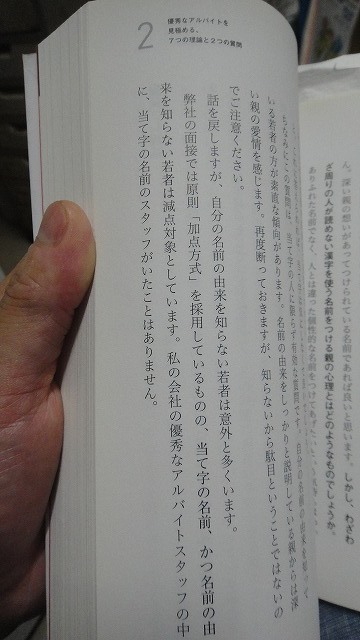 ん。深い親の想いがあってつけられている名前であれば良いと思います。しかし、わざわ
ざ周りの人が読めない漢字を使う名前をつける親の心理とはどのようなものでしょうか。
ありふれた名前でなく、人とは違った個性的な名前をつけてあげたい
2
優秀なアルバイトを
見極める、
7つの理論と2つの質問
ちなみにこの質問は、当て字の人に限らず有効な質問です。自分の名前の由来を知って
いる若者の方が素直な傾向があります。名前の由来をしっかりと説明している親からは深
い親の愛情を感じます。再度断っておきますが、知らないから駄目ということではないの
でご注意ください。
話を戻しますが、自分の名前の由来を知らない若者は意外と多くいます。
弊社の面接では原則「加点方式」を採用しているものの、当て字の名前、かつ名前の由
来を知らない若者は減点対象としています。私の会社の優秀なアルバイトスタッフの中
に、当て字の名前のスタッフがいたことはありません。